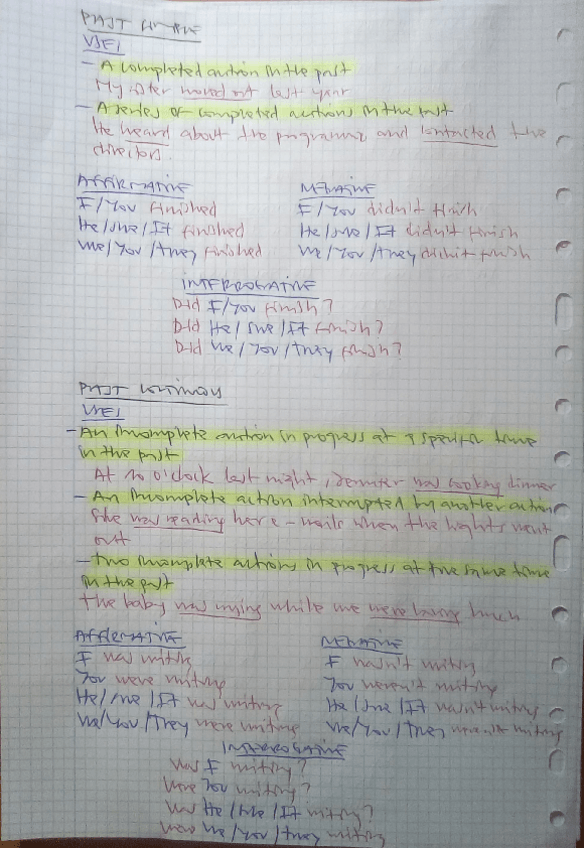 PAST SIMPLE
USES
- A completed action in the past
My sister moved out last year
- A series of completed actions in the past
He heard about the programme and contacted the
directors.
AFFIRMATIVE
I/You finished
He/she/It finished
We/You/they finished
NEGATIVE
I/You didn't finish
He/she/It didn't finish
We/You/they didn't finish
INTERROGATIVE
Did I/You finish?
Did He/she/It finish?
Did We/You/they finish?
PAST CONTINUOUS
USES
- An incomplete action in progress at a specific time
in the past
At 10 o'clock last night, was cooking dinner
- An incomplete action interrupted by another action
She was reading here - mails when the lights went
out
- two incomplete actions in progress at the same time
in the past
the baby was crying while we were having lunch
AFFIRMATIVE
I was writing
You were writing
He/she/It was writing
We/You/They were writing
NEGATIVE
I wasn't writing
You weren't writing
He/she/It wasn't writing
We/You/They weren't writing
INTERROGATIVE
Was I writing?
Were You writing?
Was He/she/It writing?
Were We/You/they writing